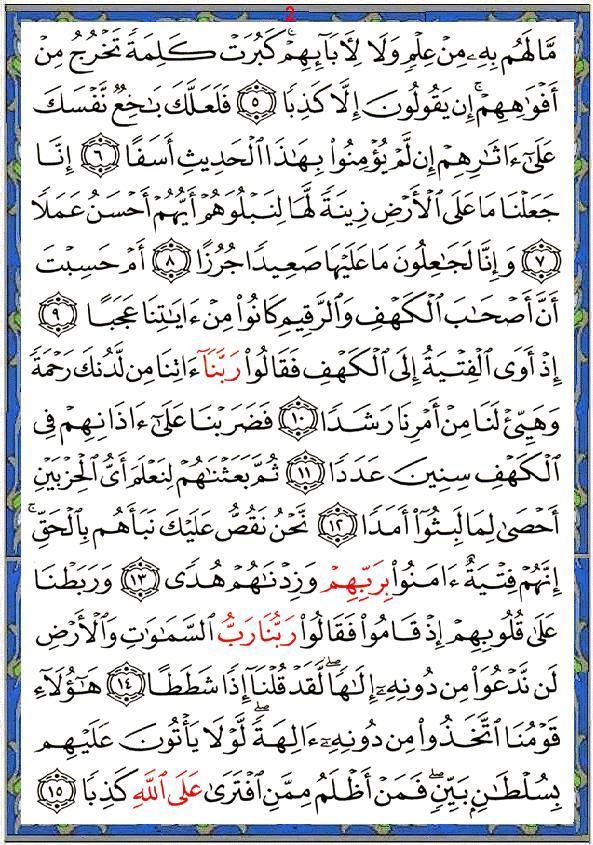 2
مَّا لَهُم بِهِۦ مِنْ عِلْمٍ وَلَا لِأٓبَآئِهِمْ ۚ كَبُرَتْ كَلِمَةً تَخْرُجُ مِنْ
أَفْوَٰهِهِمْ ۚ إِن يَقُولُونَ إِلَّا كَذِبًا ٥ فَلَعَلَّكَ بَٰخِعٌ نَّفْسَكَ
عَلَىٰٓ ءَاثَٰرِهِمْ إِن لَّمْ يُؤْمِنُوا۟ بِهَٰذَا ٱلْحَدِيثِ أَسَفًا ٦ إِنَّا
جَعَلْنَا مَا عَلَى ٱلْأَرْضِ زِينَةً لَّهَا لِنَبْلُوَهُمْ أَيُّهُمْ أَحْسَنُ عَمَلًا
٧ وَإِنَّا لَجَٰعِلُونَ مَا عَلَيْهَا صَعِيدًا جُرُزًا ٨ أَمْ حَسِبْتَ
أَنَّ أَصْحَٰبَ ٱلْكَهْفِ وَٱلرَّقِيمِ كَانُوا۟ مِنْ ءَايَٰتِنَا عَجَبًا ٩
إِذْ أَوَى ٱلْفِتْيَةُ إِلَى ٱلْكَهْفِ فَقَالُوا۟ رَبَّنَآ ءَاتِنَا مِن لَّدُنكَ رَحْمَةً
وَهَيِّئْ لَنَا مِنْ أَمْرِنَا رَشَدًا ١٠ فَضَرَبْنَا عَلَىٰٓ ءَاذَانِهِمْ فِى
ٱلْكَهْفِ سِنِينَ عَدَدًا ١١ ثُمَّ بَعَثْنَٰهُمْ لِنَعْلَمَ أَىُّ ٱلْحِزْبَيْنِ
أَحْصَىٰ لِمَا لَبِثُوٓا۟ أَمَدًا ١٢ نَّحْنُ نَقُصُّ عَلَيْكَ نَبَأَهُم بِٱلْحَقِّ ۚ
إِنَّهُمْ فِتْيَةٌ ءَامَنُوا۟ بِرَبِّهِمْ وَزِدْنَٰهُمْ هُدًى ١٣ وَرَبَطْنَا
عَلَىٰ قُلُوبِهِمْ إِذْ قَامُوا۟ فَقَالُوا۟ رَبُّنَا رَبُّ ٱلسَّمَٰوَٰتِ وَٱلْأَرْضِ
لَن نَّدْعُوَا۟ مِن دُونِهِۦٓ إِلَٰهًا ۖ لَّقَدْ قُلْنَآ إِذًا شَطَطًا ١٤ هَٰٓؤُلَآءِ
قَوْمُنَا ٱتَّخَذُوا۟ مِن دُونِهِۦٓ ءَالِهَةً ۖ لَّوْلَا يَأْتُونَ عَلَيْهِم
بِسُلْطَٰنٍۭ بَيِّنٍ ۖ فَمَنْ أَظْلَمُ مِمَّنِ ٱفْتَرَىٰ عَلَى ٱللَّهِ كَذِبًا ١٥